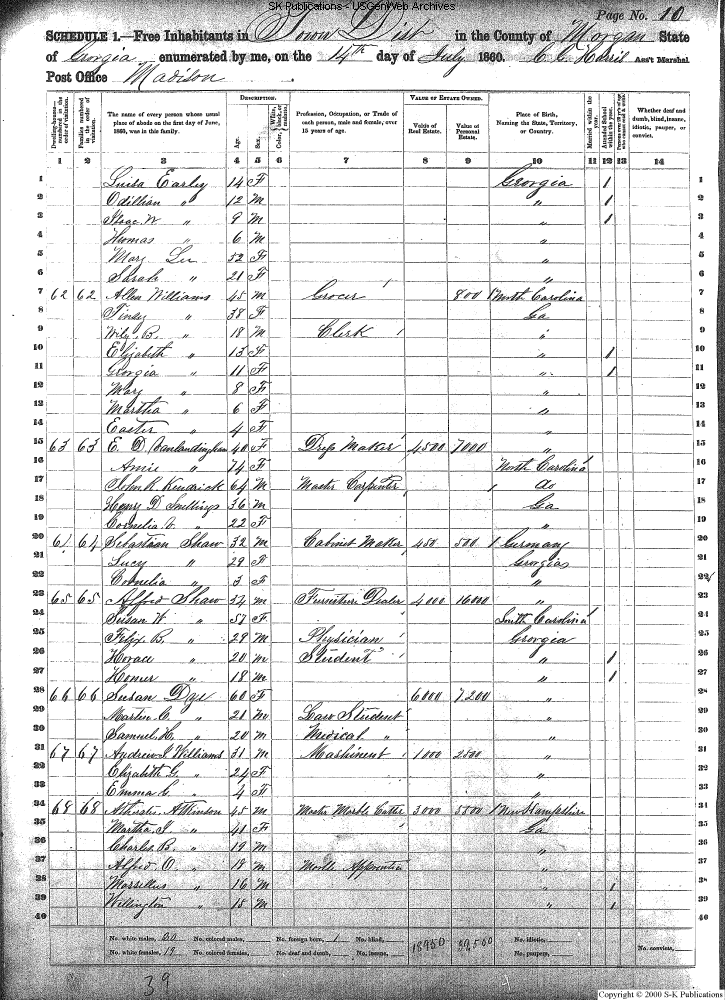 SK Publications - USGenWeb Archives
Page No. 10
SCHEDULE 1.—Free Inhabitants in Town Dist in the County of Morgan State
of Georgia enumerated by me, on the 14th day of July 1860. C. C. Harris Ass't Marshal
Post Office Madison
Dwelling-houses—numbered in the order of visitation.
Families numbered in the order of visitation.
The name of every person whose usual place of abode on the first day of June, 1860, was in this family.
DESCRIPTION.
Age.
Sex.
Color, White, black, or mulatto.
Profession, Occupation, or Trade of each person, male and female, over 15 years of age.
VALUE OF ESTATE OWNED.
Value of Real Estate.
Value of Personal Estate.
Place of Birth, Naming the State, Territory, or Country.
Married within the year.
Attended School within the year.
Whether deaf and dumb, blind, insane, idiotic, pauper, or convict.
1 2 3 4 5 6 7 8 9 10 11 12 13 14
1 Luisa Earley 14 F Georgia / 1
2 Odillian " 12 M " / 2
3 Isaac W " 9 M " / 3
4 Thomas " 6 M " 4
5 Mary Lee 52 F " 5
6 Sarah " 21 F " 6
7 62 62 Allen Williams 45 M Grocer 800 North Carolina 7
8 Tinsy " 38 F Ga 8
9 Wily B. " 18 M Clerk " 9
10 Elizabeth " 13 F " / 10
11 Georgia " 11 F " / 11
12 Mary " 8 F " 12
13 Martha " 6 F " 13
14 Easter " 4 F " 14
15 63 63 E. D. Vanlandingham 40 F Dress Maker 4500 7000 " 15
16 Amie " 74 F North Carolina 16
17 John R. Kendrick 64 M Master Carpenter do 17
18 Henry D Snellings 36 M Ga 18
19 Cornelia " 22 F " 19
20 64 64 Sebastian Shaw 32 M Cabinet Maker 450 500 Germany 20
21 Lucy " 29 F Georgia 21
22 Cornelia " 3 F " 22
23 65 65 Alfred Shaw 54 M Furniture Dealer 4000 16000 " 23
24 Susan W. " 51 F South Carolina 24
25 Felix B. " 29 M Physician Georgia 25
26 Horace " 20 M Student " / 26
27 Homer " 18 M " / 27
28 66 66 Susan Dye 60 F 6000 7200 " 28
29 Martin C. " 21 M Law Student " 29
30 Samuel H. " 20 M Medical " " 30
31 67 67 Andrew J Williams 31 M Mashinest 1000 2500 " 31
32 Elizabeth G. " 24 F " 32
33 Emma C. " 4 F " 33
34 68 68 Atkinson 45 M Master Marble Cutter 3000 5500 New Hampshire 34
35 Martha J. " 41 F Ga 35
36 Charles B. " 19 M " 36
37 Alfred O. " 18 M Marble Apprentice " 37
38 Marsellus " 16 M " / 38
39 Wellington " 15 M " / 39
40 40
No. white males, 20 No. colored males, No. foreign born, 1 No. blind, 18950 39500 No. idiotic,
No. white females, 19 No. colored females, No. deaf and dumb, No. insane, No. paupers, No. convicts,
39
Copyright © 2000 S-K Publications